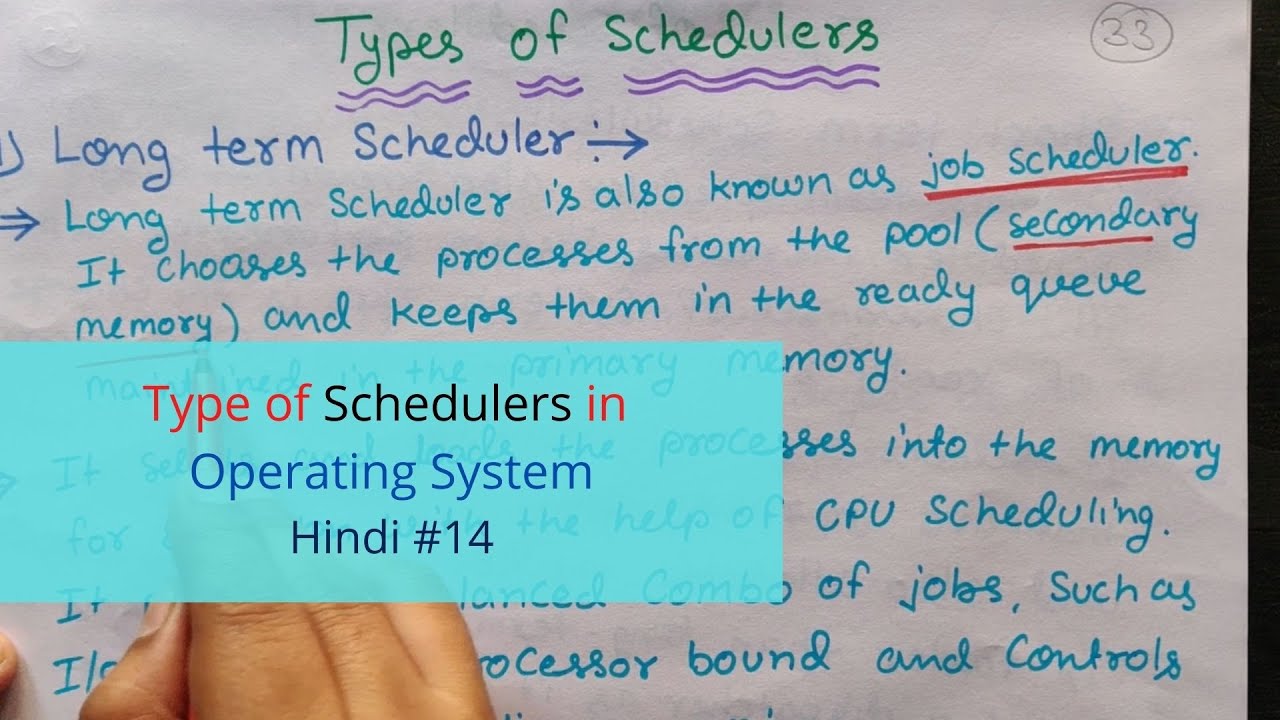 Types of Schedulers
33
1) Long term Scheduler:→
⇒ Long term Scheduler is also known as job scheduler.
It chooses the processes from the pool (secondary
memory) and keeps them in the ready queue
maintained in the primary memory.
Type of Schedulers in
Operating System
Hindi #14
It and loads the processes into the memory
for with the help of CPU Scheduling.
It Combo of jobs, Such as
I/o bound and Controls